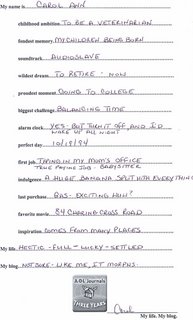 My name is CAROL ANN
childhood ambition TO BE A VETERINARIAN
fondest memory MY CHILDREN BEING BORN
soundtrack AUDIOSLAVE
wildest dream TO RETIRE - NOW
proudest moment GOING TO COLLEGE
biggest challenge BALANCING TIME
alarm clock YES - BUT TURN IT OFF, AND I'D
WAKE US ALL NIGHT
perfect day 10/18/94
first job TAPING IN MY MOM'S OFFICE
TRUE PAYING JOB - BABYSITTER
indulgence A HUGE BANANA SPLIT WITH EVERYTHING
last purchase GAS - EXCITING HUH?
favorite movie 84 CHARING CROSS ROAD
inspiration COMES FROM MANY PLACES
My life HECTIC - FULL - LUCKY - SETTLED
My blog NOT SURE - LIKE ME, IT MORPHS.
AOL Journals
THREE YEARS
Carol
My life. My blog.